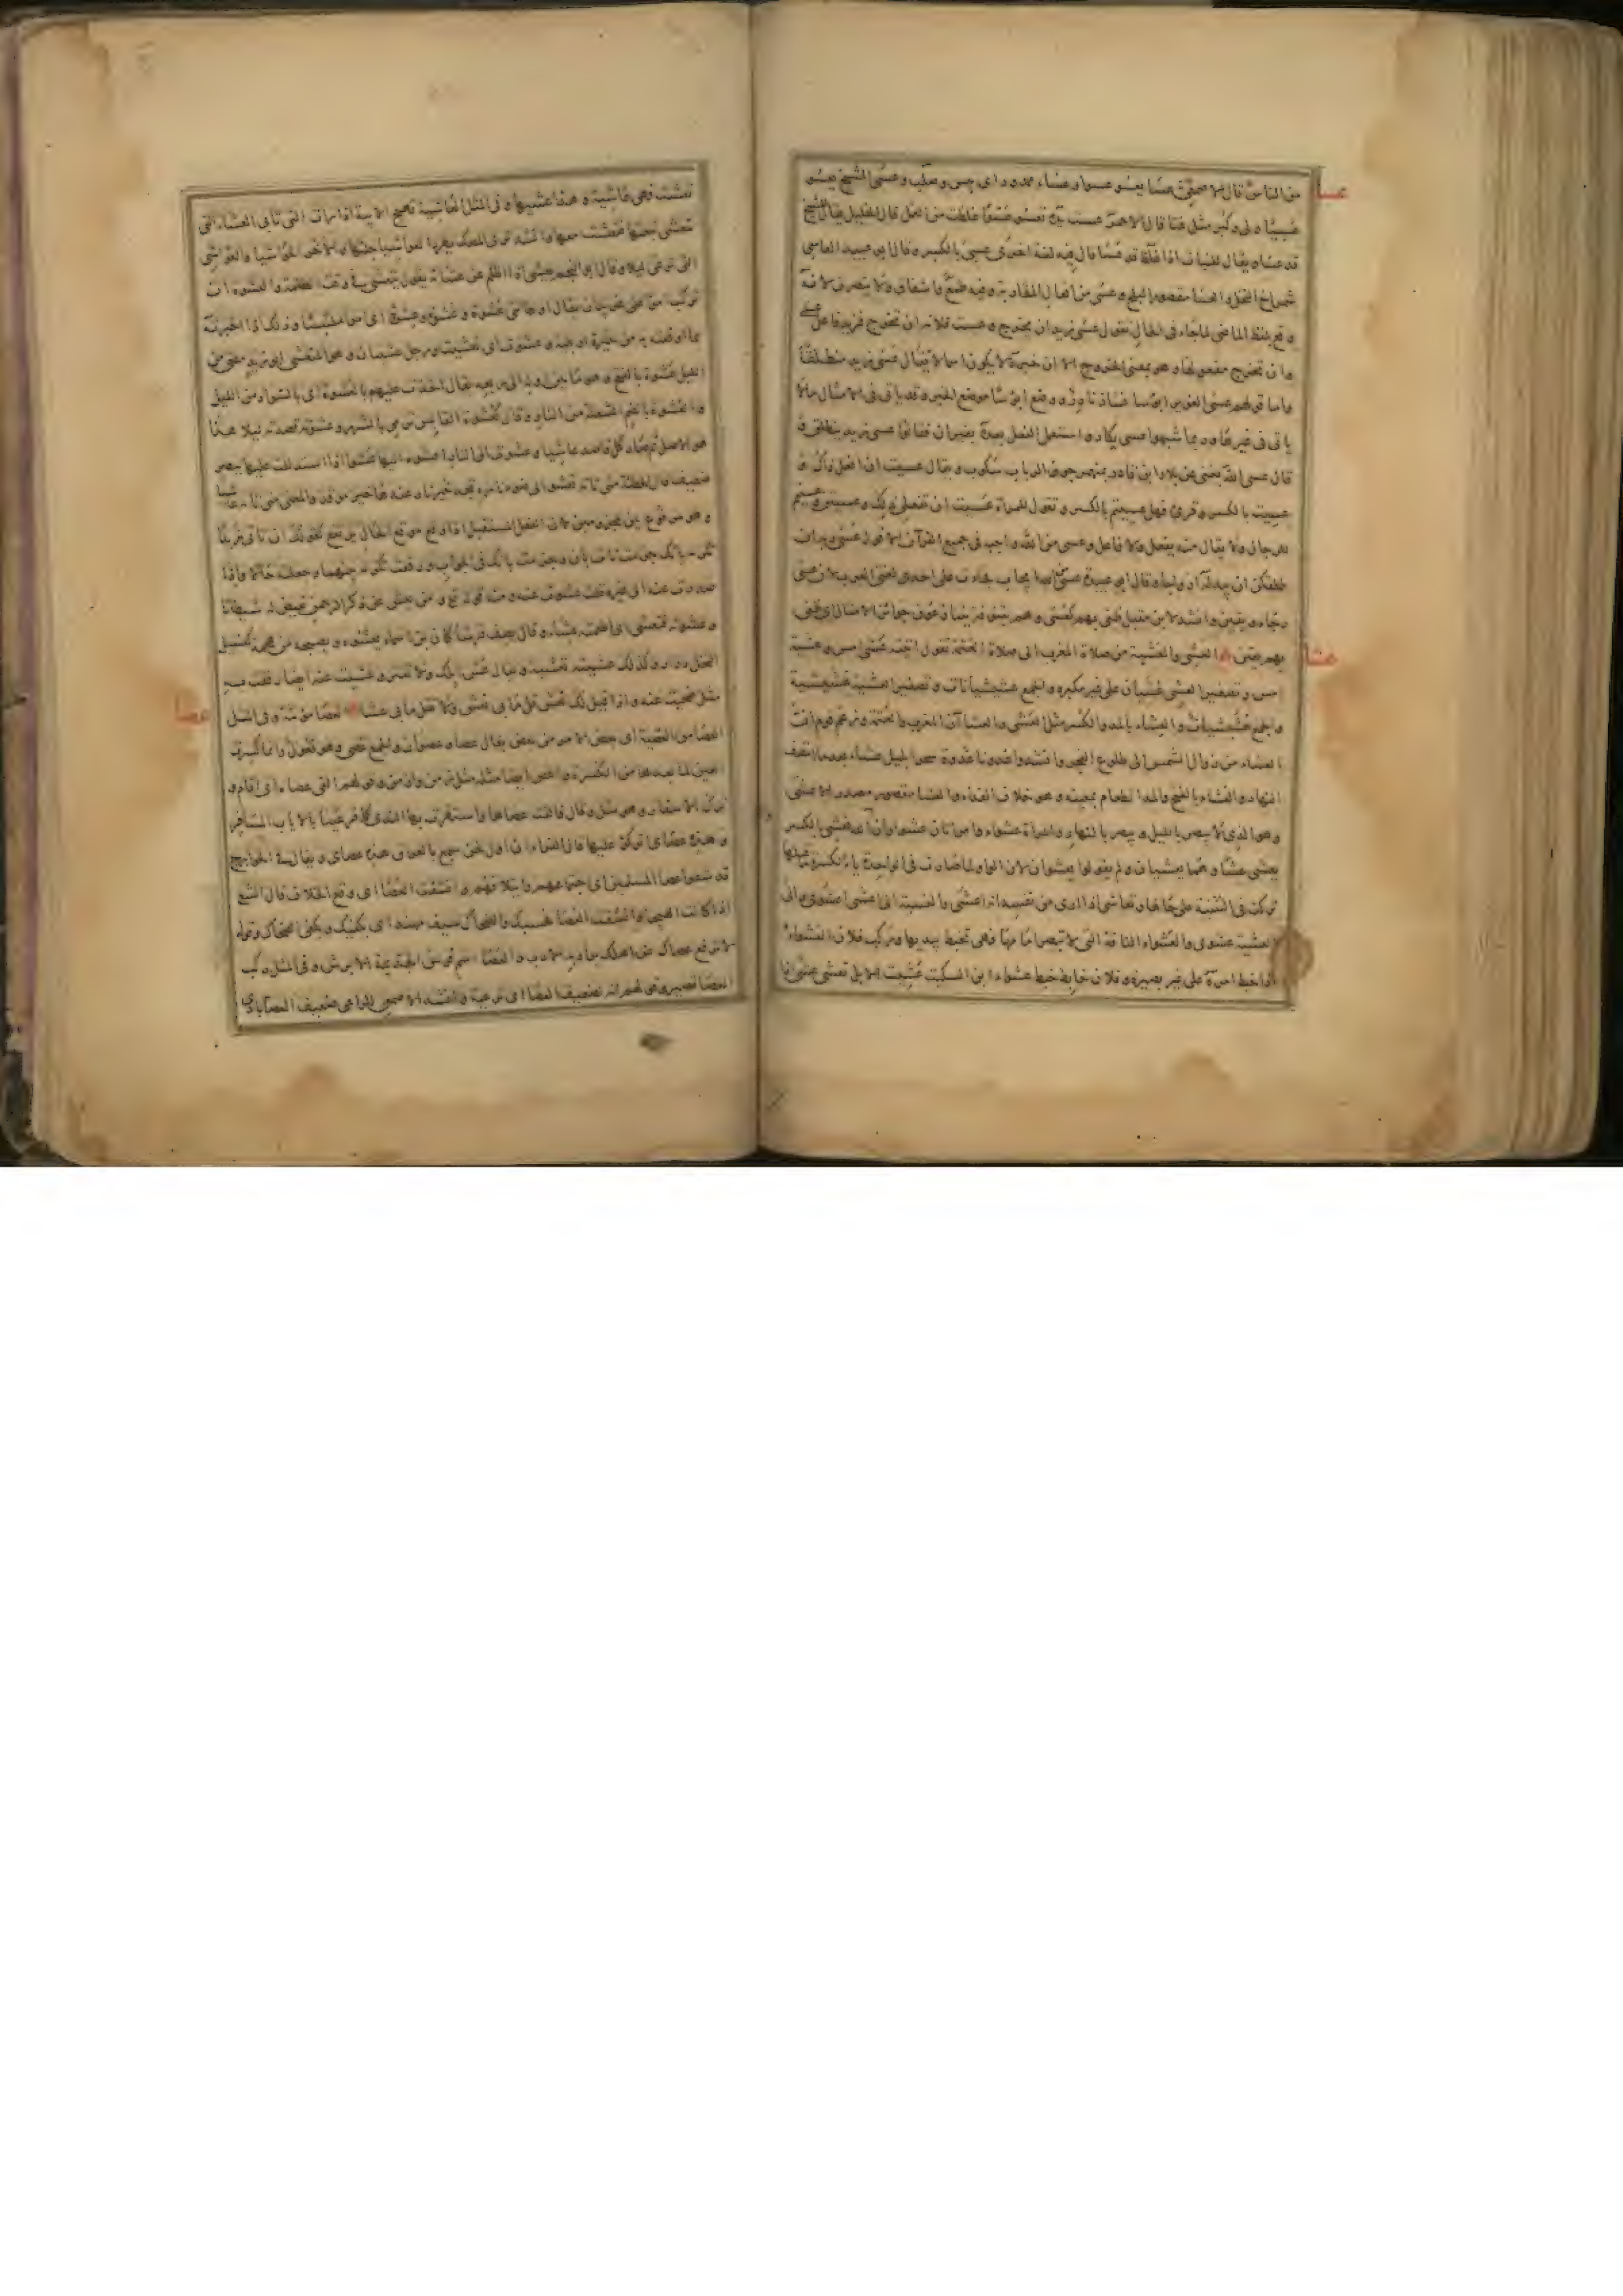 عسا
من الناس قال الاصمعى عسا يعسو عسوا وعساء ممدود اى يبس وصلب وعسى الشيخ يعسو
عسيا ولى وكبر مثل عتا قال الاحمر عست يده تعسو عسوا غلظت من العمل قال الخليل يقال للشيخ
قد عسا ويقال للنبات اذا غلظ قد عسا قال وفيه لغة اخرى عسى بالكسر وقال ابو عبيد العاسى
شمراخ النخل والعسا مقصورا البلح وعسى من افعال المقاربة وفيه طمع واشفاق ولا يتصرف لانه
وقع بلفظ الماضى لما جاء فى الحال تقول عسى زيد ان يخرج وعست فلانة ان تخرج فزيد فاعل عسى
وان تخرج مفعولها وهو بمعنى الخروج الا ان خبره لا يكون اسما لا يقال عسى زيد منطلقا
واما قولهم عسى الغوير ابؤسا فشاذ نادر وضع ابؤسا موضع الخبر وقد ياتى فى الامثال ما لا
ياتى فى غيرها وربما شبهوا عسى بكاد واستعمل الفعل بعده بغير ان فقالوا عسى زيد ينطلق
قال عسى الله يغنى عن بلاد ابن قادر بمنهمر جون الرباب سكوب ويقال عسيت ان افعل ذاك و
عسيت بالكسر وقرئ فهل عسيتم بالكسر وتقول للمراة عست ان تفعلى ذلك وعسيتن وعسيتم
للرجال ولا يقال منه يفعل ولا فاعل وعسى من الله واجب فى جميع القرآن الا قوله عسى ربه ان
طلقكن ان يبدله ازواجا وقال ابو عبيدة عسى ايجاب فجاءت على احدى لغتى العرب لان عسى
رجاء ويقين وانشد لابن مقبل ظنى بهم كعسى وهم بتنوفة يتنازعون جوائز الامثال اى ظنى
بهم يقين العشى والعشية من صلاة المغرب الى صلاة العتمة تقول اتيته عشى امس وعشية
عشا
امس وتصغير العشى عشيان على غير مكبره والجمع عشيشيانات وتصغير العشية عشيشية
والجمع عشيشيات والعشاء بالمد والكسر مثل العشى والعشاآن المغرب والعتمة وزعم قوم ان
العشاء من زوال الشمس الى طلوع الفجر وانشدوا غدونا غدوة سحرا بليل عشاء بعد ما انتصف
النهار والعشاء بالفتح والمد الطعام بعينه وهو خلاف الغداء والعشا مقصور مصدر الاعشى
وهو الذى لا يبصر بالليل ويبصر بالنهار والمراة عشواء وامراتان عشواوان وقد عشى بالكسر
يعشى عشا وهما يعشيان ولم يقولوا يعشوان لان الواو لما صارت فى الواحد ياء لكسرة ما قبلها
تركت فى التثنية على حالها وتعاشى اذا ارى من نفسه انه اعشى والنسبة الى اعشى اعشوى والى
العشية عشوى والعشواء الناقة التى لا تبصر امامها فهى تخبط بيديها وركب فلان العشواء
اذا خبط امره على غير بصيرة وفلان خابط خبط عشواء ابن السكيت عشيت الابل تعشى عشى اذا
تعشت فهى عاشية وهذا عشيها وفى المثل العاشية تهيج الابية اذا رات التى تابى العشاء التى
تتعشى تبعتها فتعشت معها
التى ترعى ليلا وقال ابو النجم يعشى اذا اظلم عن عشائه يقول يتعشى فى وقت الظلمة والعشوة ان
تركب امرا على غير بيان يقال اوطاتنى عشوة وعشوة وعشوة اى امرا ملتبسا وذلك اذا اخبرته
بما اوقعته به من حيرة او بلية وعشوت اى تعشيت ورجل عشيان وهو المتعشى ابو زيد مضى من
الليل عشوة بالفتح وهو ما بين اوله الى ربعه يقال اخذت عليهم بالعشوة اى بالسواد من الليل
والعشوة بالضم الشعلة من النار وقال كعشوة القابس ترمى بالشرر وعشوته قصدته ليلا هذا
هو الاصل ثم صار كل قاصد عاشيا وعشوت الى النار اعشو اليها عشوا اذا استدللت عليها ببصر
ضعيف قال الحطيئة متى تاته تعشو الى ضوء ناره تجد خير نار عندها خير موقد والمعنى متى تاته عاشيا
وهو مرفوع بين مجزومين لان الفعل المستقبل اذا وقع موقع الحال يرتفع كقولك ان تات زيدا
تكرمه ياتك جزمت تات بان وجزمت ياتك فى الجواب ورفعت تكرمه بينهما وجعلته حالا واذا
صدرت عنه الى غيره قلت عشوت عنه ومنه قوله تع ومن يعش عن ذكر الرحمن نقيض له شيطانا
وعشوته فتعشى اى اطعمته عشاء وقال يصف فرسا كان ابن اسماء يعشوه ويصبحه من هجمة كفسيل
النخل درار وكذلك عشيته تعشية ويقال عش ابلك ولا تغتر وعشيت عنه ايضا رفقت به
مثل ضحيت عنه واذا قيل لك تعش قل ما بى تعش ولا تقل ما بى عشاء العصا مؤنثة وفى المثل
عصا
العصا من العصية اى بعض الامر من بعض يقال عصا وعصوان والجمع عصى وهو فعول وانما كسرت
العين لما بعدها من الكسرة واعص ايضا مثله مثل زمن وازمن وقولهم القى عصاه اى اقام و
ترك الاسفار وهو مثل وقال فالقت عصاها واستقرت بها النوى كما قر عينا بالاياب المسافر
وهذه عصاى اتوكأ عليها قال الفراء اول لحن سمع بالعراق هذه عصاتى ويقال فى الخوارج
قد شقوا عصا المسلمين اى اجتماعهم وايتلافهم وانشقت العصا اى وقع الخلاف قال الشاعر
اذا كانت الهيجاء وانشقت العصا فحسبك والضحاك سيف مهند اى يكفيك ويكفى الضحاك وقوله
لا ترفع عصاك عن اهلك يراد به الادب والعصا اسم فرس جذيمة الابرش وفى المثل ركب
العصا قصير وقولهم انه لضعيف العصا اى ترعية وانشد الاصمعى للراعى ضعيف العصا بادى